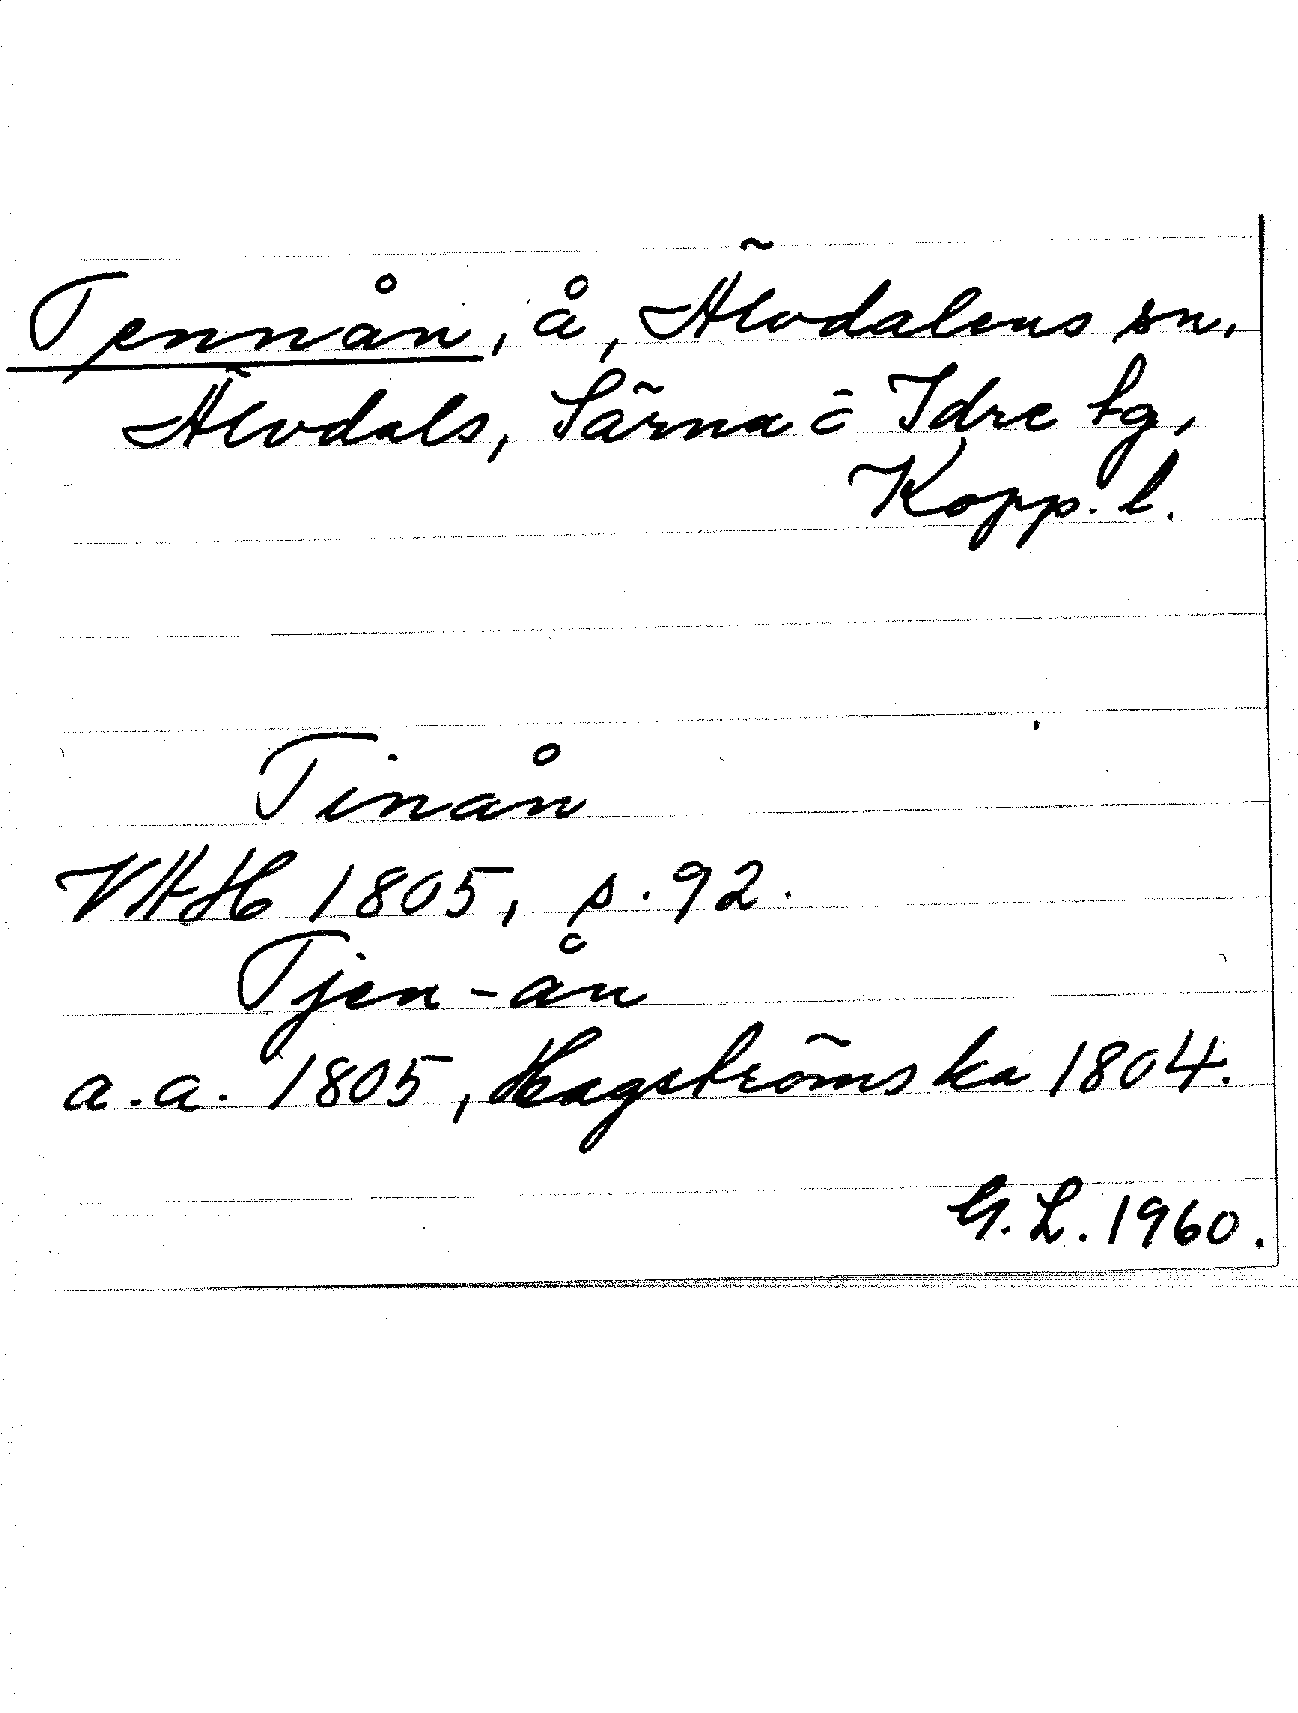 Tennån, å, Älvdalens sn,
Älvdals, Särna o Idre tg,
Kopp. l.
Tinån
VAH 1805, s. 92.
Tjen-ån
a. a. 1805, Hagströms ka 1804.
G. L. 1960.